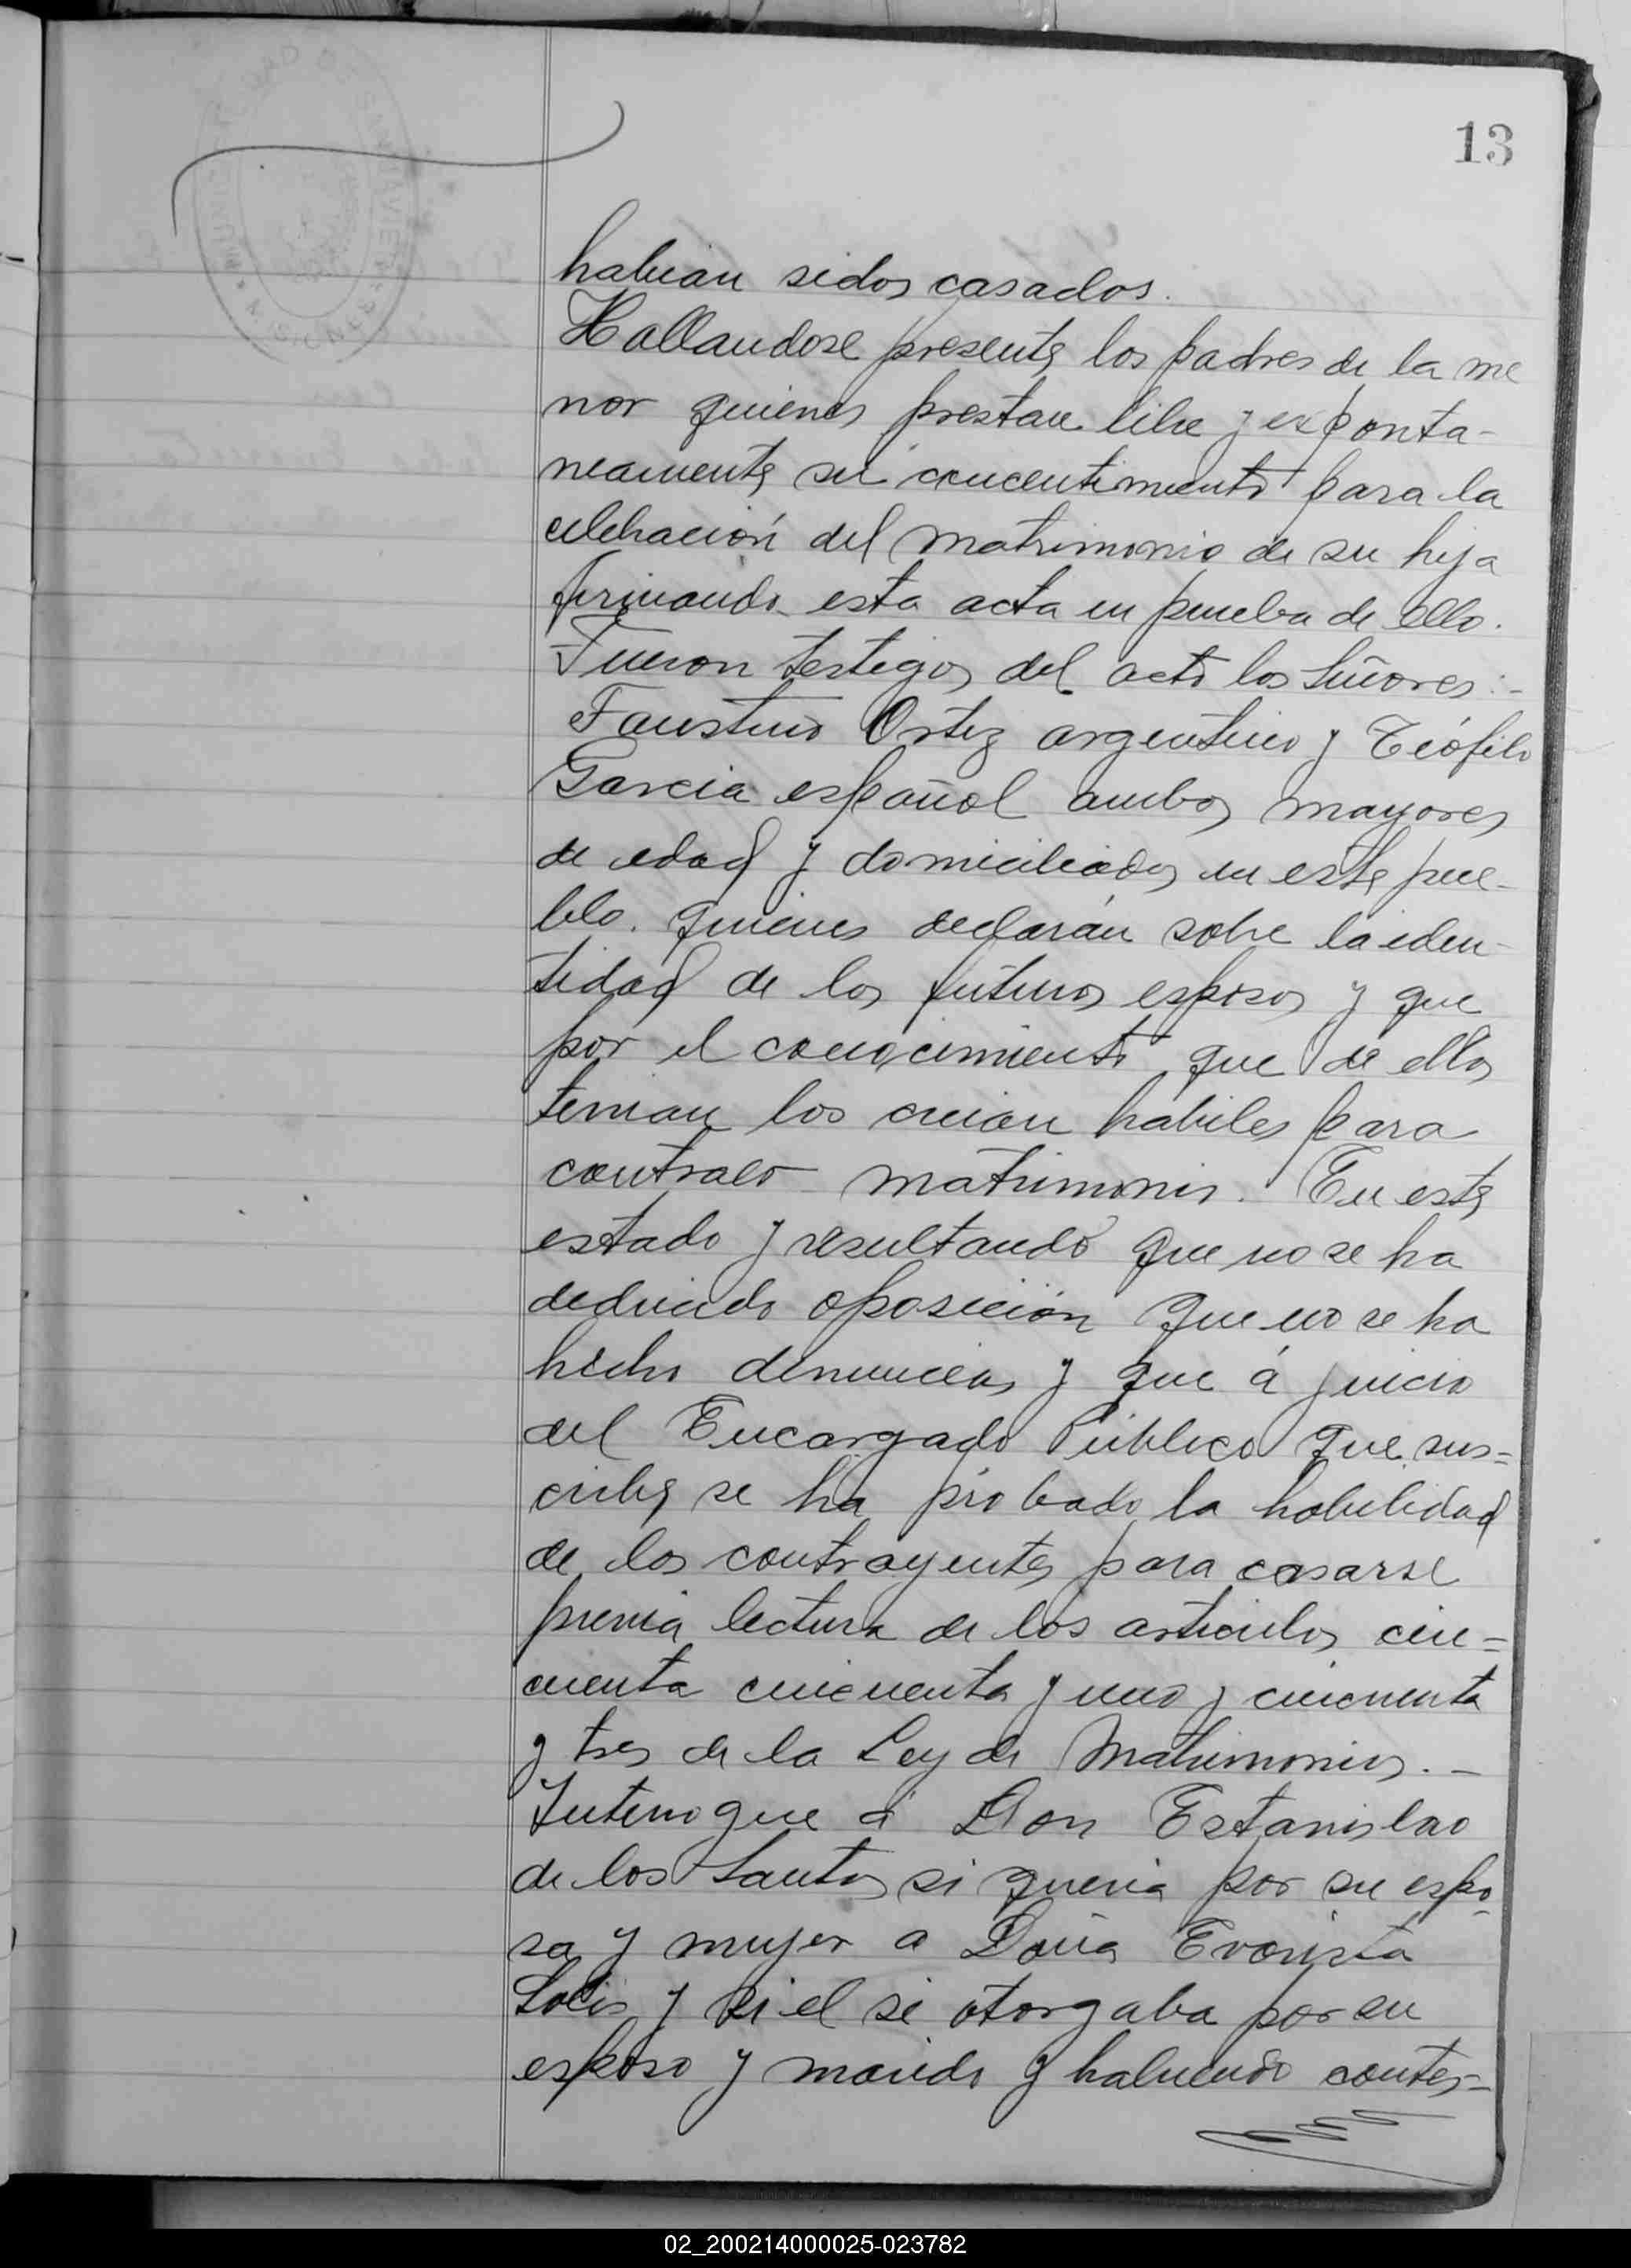 13
habian sidos casados.
Hallandose presente los padres de la me
nor quienes prestan libre y exponta-
neamente su concentimiento para la
celebración del matrimonio de su hija
firmando esta acta en prueba de ello.
Fueron testigos del acto los Señores:-
Faustino Ortiz argentino y Teófilo
Garcia español ambos mayores
de edad y domiciliados en este pue-
blo. quienes declarán sobre la iden-
tidad de los futuros esposos y que
por el conocimiento que de ellos
tenian los creian habiles para
contraer matrimonio. En este
estado y resultando que no se ha
deducido oposición que no se ha
hecho denuncias y que á juicio
del Encargado Público que sus=
cribe se ha probado la habilidad
de los contrayentes para casarse
previa lectura de los articulos cin=
cuenta cincuenta y uno y cincuenta
y tres de la Ley de Matrimonios.-
Interrogue á Don Estanislao
de los Santos si queria por su espo-
sa y mujer a Doña Evarista
Solis y si el se otorgaba por su
esposo y marido y habiendo contes-
02_200214000025-023782